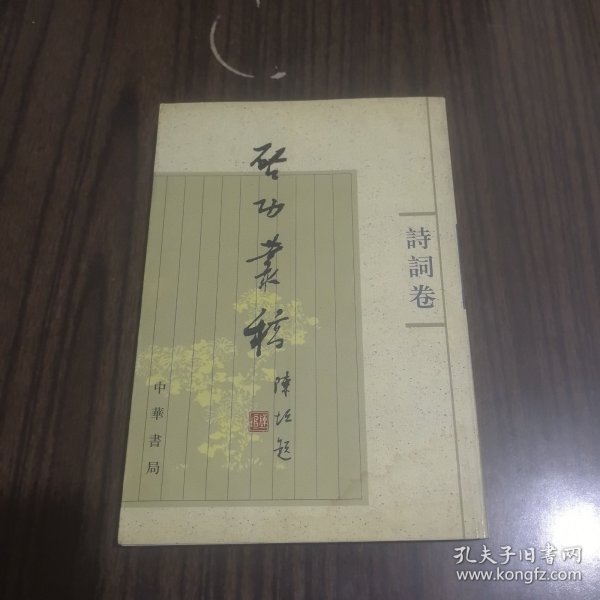 启功叢稿
陳垣題
詩詞卷
中華書局
孔夫子旧书网
www.kongfz.com